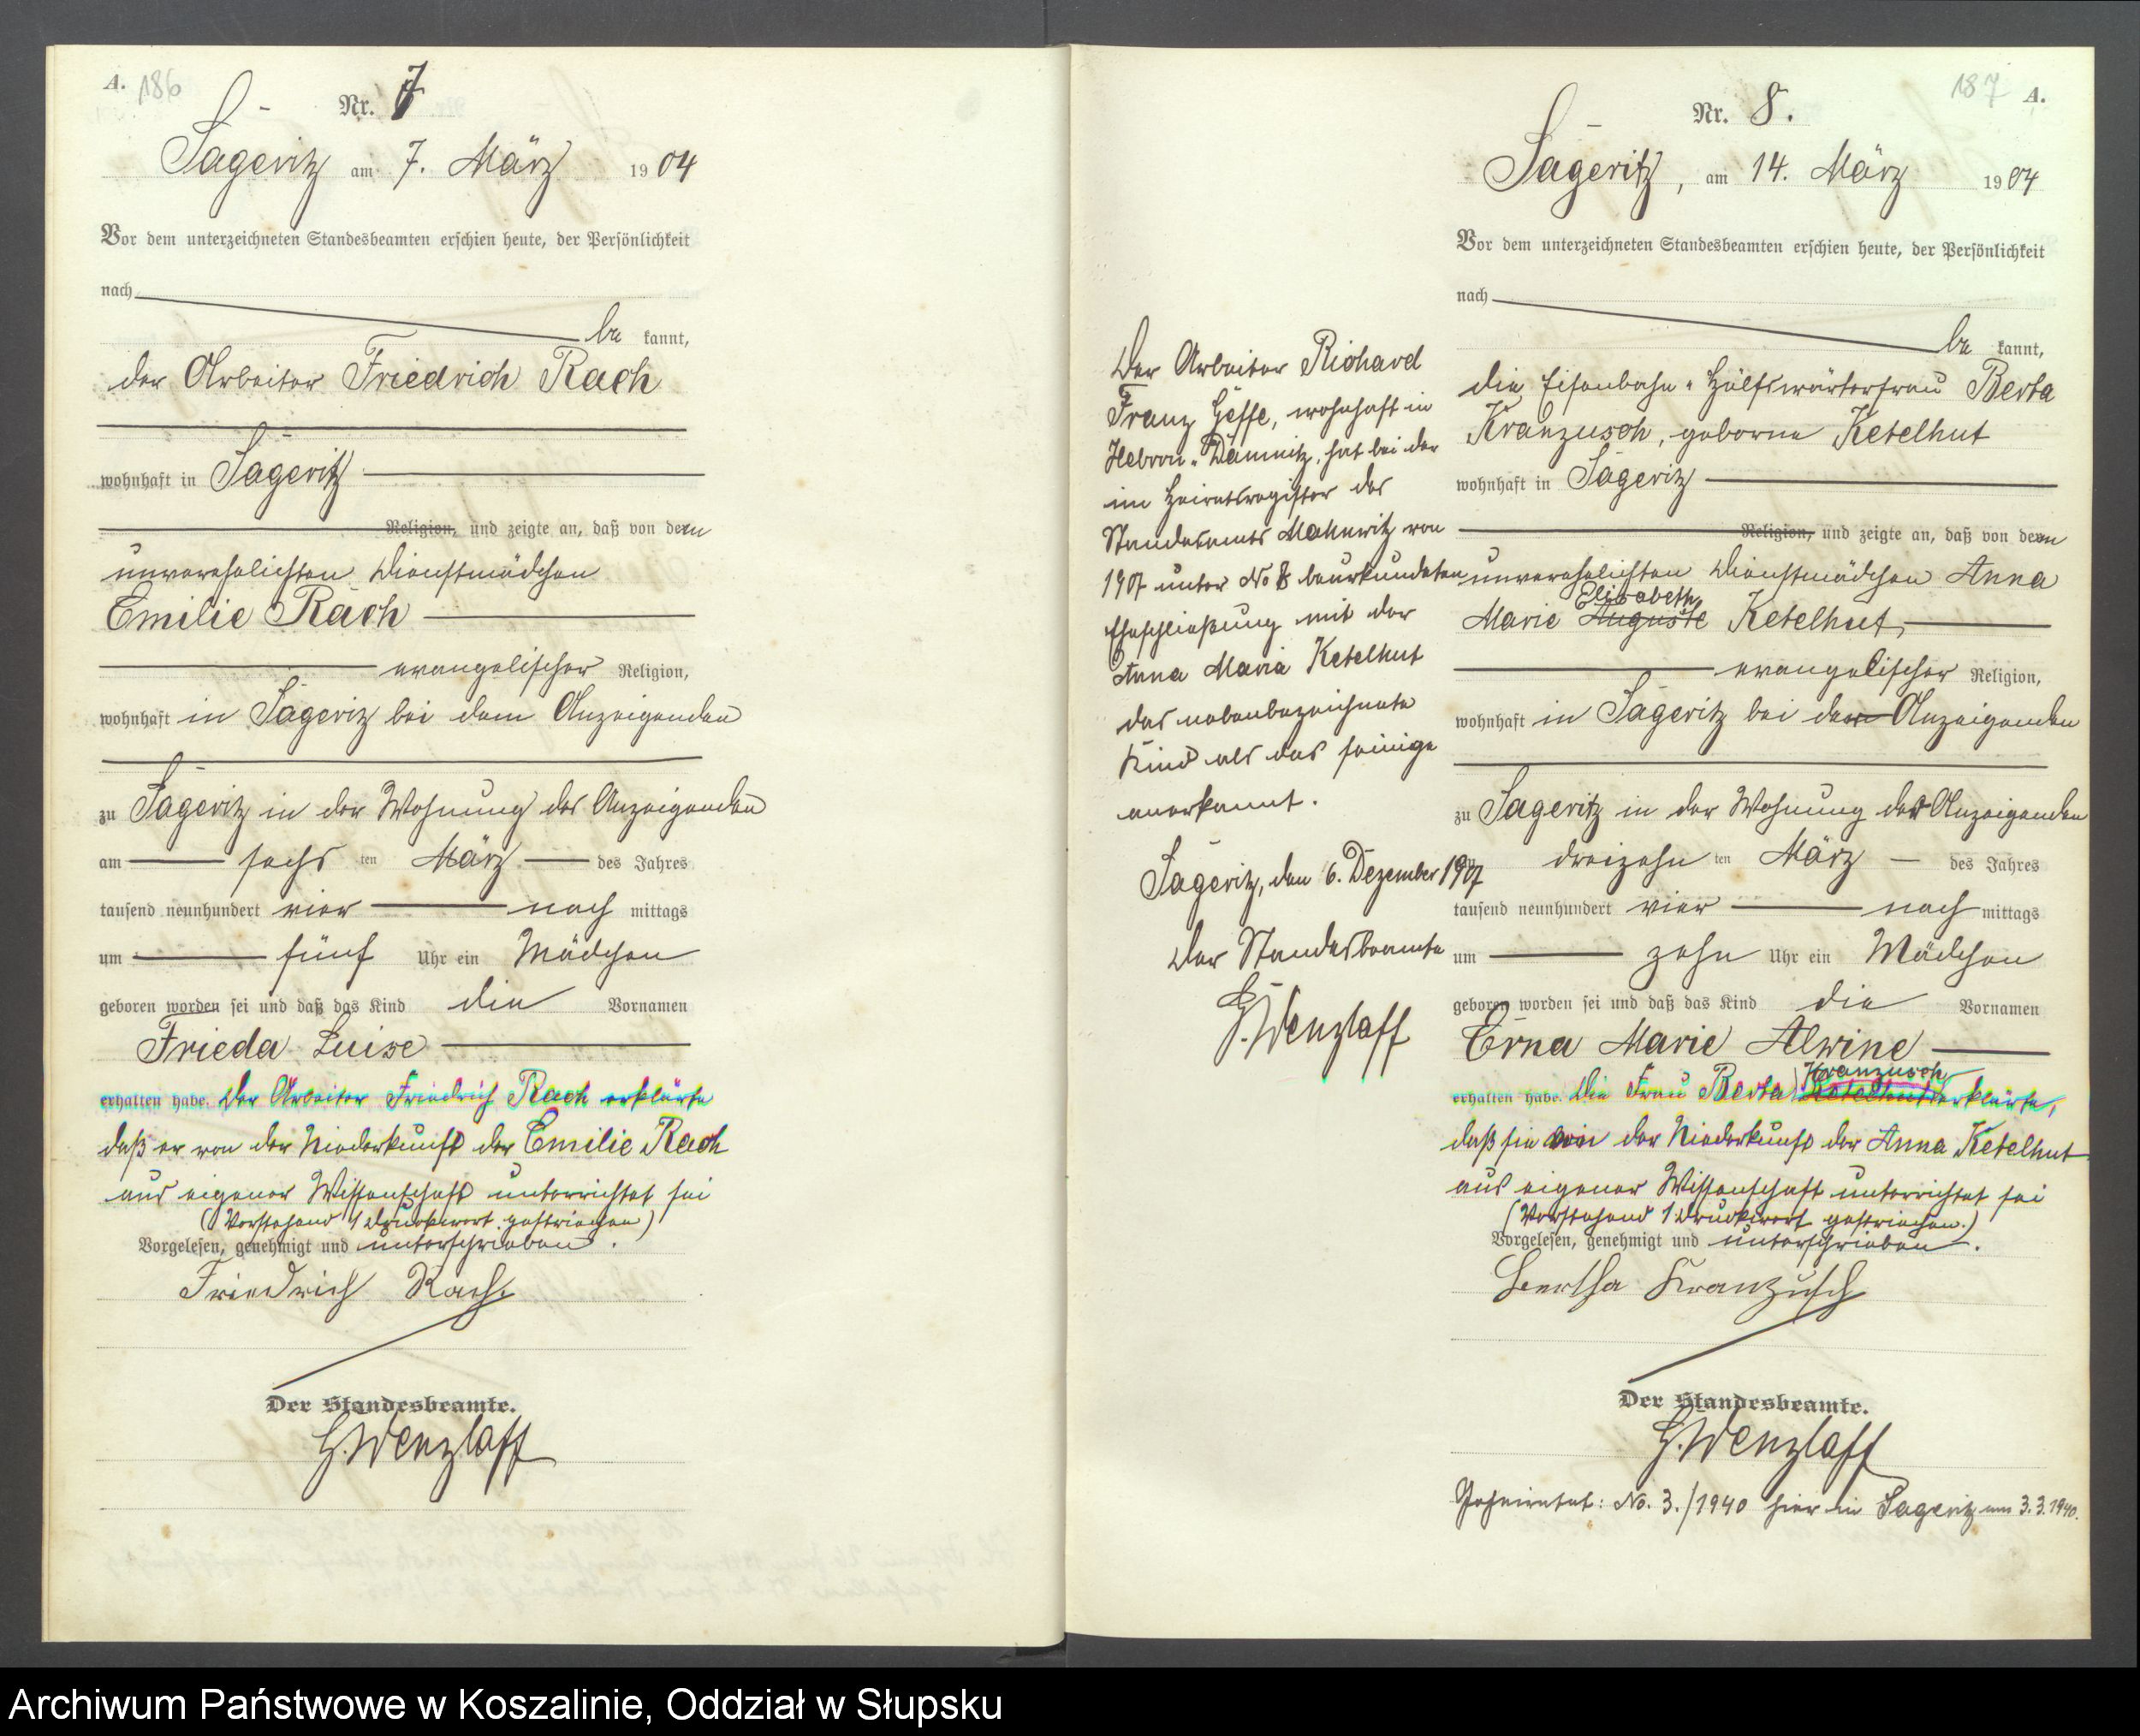 A. 186
Nr. 7
Sageritz am 7. März 1904
Vor dem unterzeichneten Standesbeamten erschien heute, der Persönlichkeit
nach
be kannt,
der Arbeiter Friedrich Rach
wohnhaft in Sageritz
Religion, und zeigte an, daß von dem
unverehelichten Dienstmädchen
Emilie Rach
evangelischer Religion,
wohnhaft in Sageritz bei dem Anzeigenden
zu Sageritz in der Wohnung des Anzeigenden
am sechs ten März des Jahres
tausend neunhundert vier nach mittags
um fünf Uhr ein Mädchen
geboren worden sei und daß das Kind die Vornamen
Frieda Luise
erhalten habe. Der Arbeiter Friedrich Rach erklärte
daß er von der Niederkunft der Emilie Rach
aus eigener Wissenschaft unterrichtet sei
(Vorstehend 1 Druckwort gestrichen)
Vorgelesen, genehmigt und unterschrieben.
Friedrich Rach.
Der Standesbeamte.
G. Wenzlaff
187 A.
Nr. 8.
Sageritz, am 14. März 1904
Vor dem unterzeichneten Standesbeamten erschien heute, der Persönlichkeit
nach
be kannt,
die Eisenbahn-Hülfswärterfrau Berta
Kranzusch, geborne Ketelhut
wohnhaft in Sageritz
Religion, und zeigte an, daß von dem
unverehelichten Dienstmädchen Anna
Elisabeth
Marie Auguste Ketelhut,
evangelischer Religion,
wohnhaft in Sageritz bei der Anzeigenden
zu Sageritz in der Wohnung der Anzeigenden
am dreizehn ten März des Jahres
tausend neunhundert vier nach mittags
um zehn Uhr ein Mädchen
geboren worden sei und daß das Kind die Vornamen
Erna Marie Alwine
Kranzusch
erhalten habe. Die Frau Berta Ketelhut erklärte,
daß sie von der Niederkunft der Anna Ketelhut
aus eigener Wissenschaft unterrichtet sei
(Vorstehend 1 Druckwort gestrichen.)
Vorgelesen, genehmigt und unterschrieben.
Bertha Kranzusch
Der Standesbeamte.
G. Wenzlaff
Geheiratet: No. 3./1940 hier in Sageritz am 3.3.1940.
Der Arbeiter Richard
Franz, wohnhaft in
Hebron-Damnitz, hat bei der
im Heiratsregister des
Standesamts Mahnwitz von
1907 unter No 8 beurkundeten
Eheschließung mit der
Anna Maria Ketelhut
das nebenbezeichnete
Kind als das seinige
anerkannt.
Sageritz, den 6. Dezember 1907
Der Standesbeamte
G. Wenzlaff
Archiwum Państwowe w Koszalinie, Oddział w Słupsku